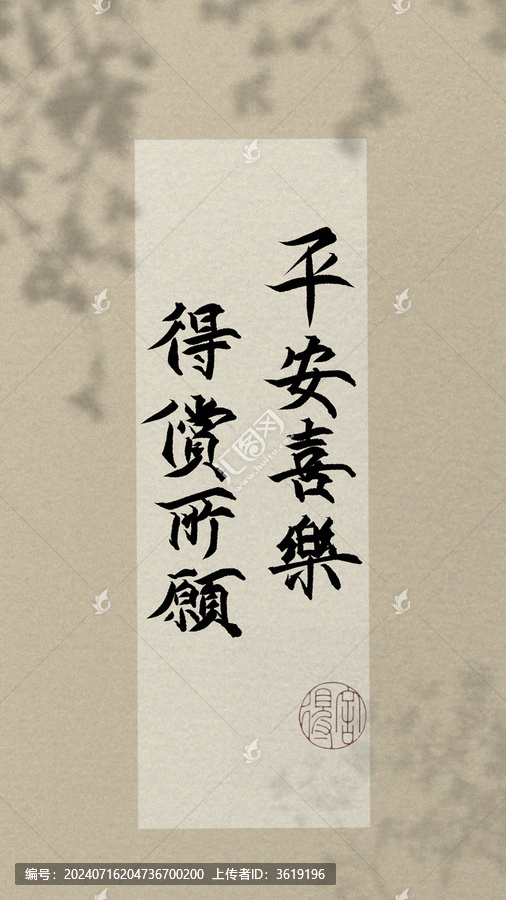 平安喜樂
得償所願
汇图网
www.huitu.com
编号：20240716204736700200 上传者ID：3619196